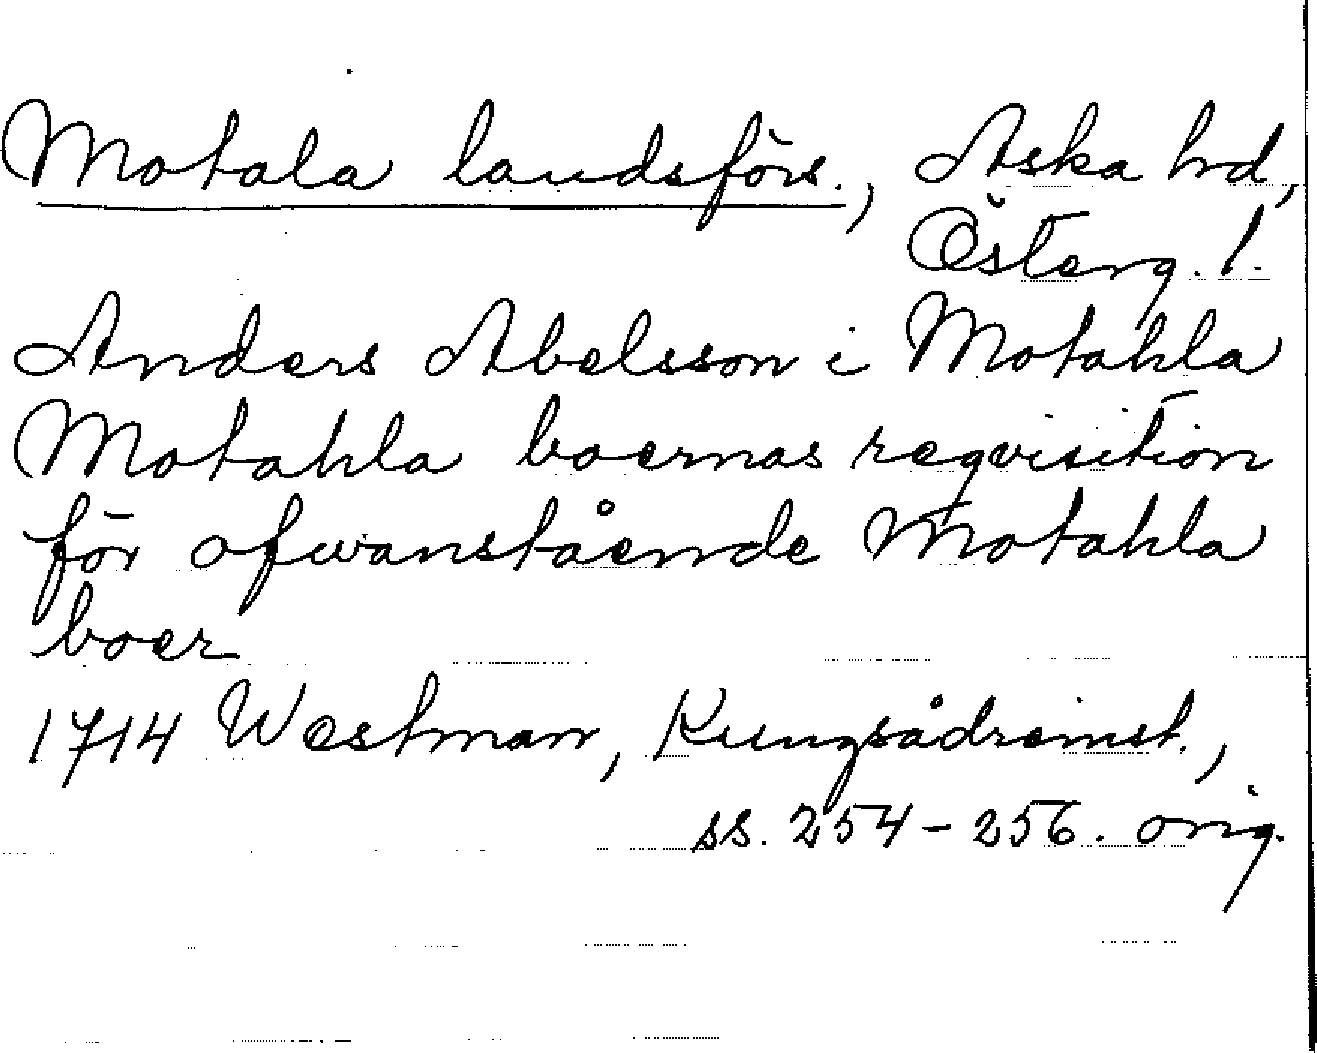 Motala landsförs., Aska hd,
Österg. l.
Anders Abelsson i Motahla
Motahla boernas reqvisition
för ofwanstående Motahla
boer
1714 Westman, Kungsådreinst.,
ss. 254-256. orig.